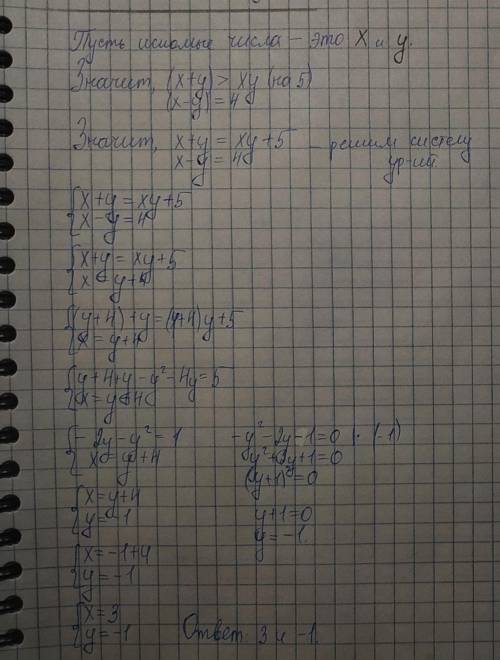 Пусть искомые числа – это x и y.
Значит, (x+y) > xy (на 5)
(x-y) = 4
Значит, x+y = xy+5 – решим систему
x-y = 4 ур-ий.
{x+y = xy+5
{x-y = 4
{x+y = xy+5
{x = y+4
{(y+4)+y = (y+4)y+5
{x = y+4
{y+4+y-y²-4y = 5
{x = y+4
{-2y-y² = 1 -y²-2y-1=0 |·(-1)
{x = y+4 y²+2y+1=0
(y+1)²=0
{x = y+4 y+1=0
{y = -1 y = -1.
{x = -1+4
{y = -1
{x = 3
{y = -1 Ответ: 3 и -1.